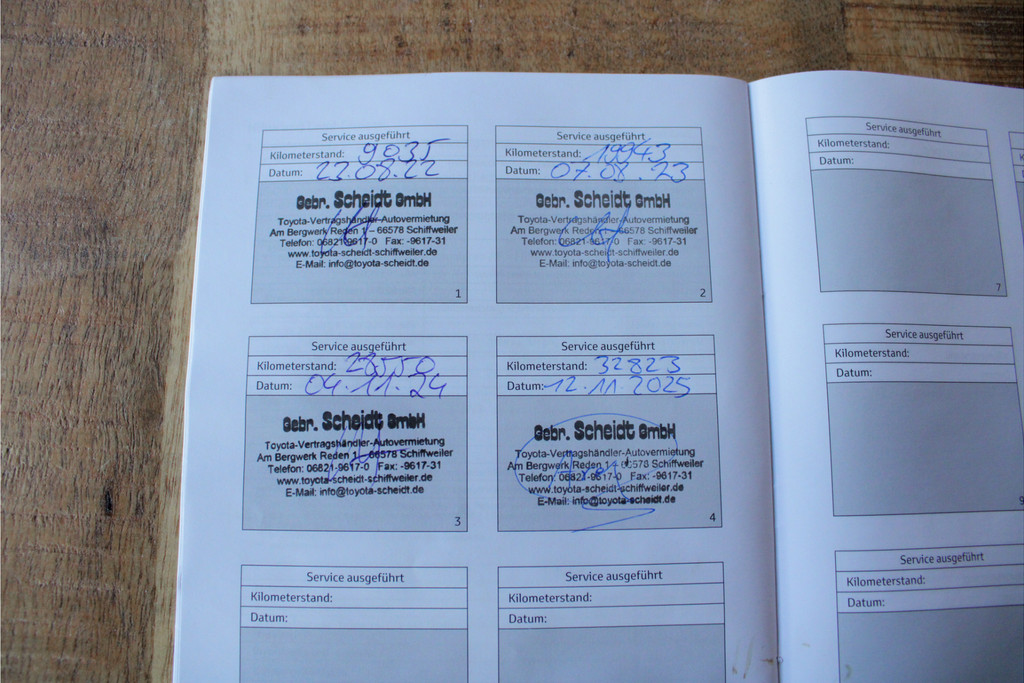 Service ausgeführt
Kilometerstand: 9035
Datum: 23.08.22
Gebr. Scheidt GmbH
Toyota-Vertragshändler-Autovermietung
Am Bergwerk Reden 1 - 66578 Schiffweiler
Telefon: 06821-9617-0 Fax: -9617-31
www.toyota-scheidt-schiffweiler.de
E-Mail: info@toyota-scheidt.de
1
Service ausgeführt
Kilometerstand: 19943
Datum: 07.08.23
Gebr. Scheidt GmbH
Toyota-Vertragshändler-Autovermietung
Am Bergwerk Reden - 66578 Schiffweiler
Telefon: 06821-9617-0 Fax: -9617-31
www.toyota-scheidt-schiffweiler.de
E-Mail: info@toyota-scheidt.de
2
Service ausgeführt
Kilometerstand: 28550
Datum: 04.11.24
Gebr. Scheidt GmbH
Toyota-Vertragshändler-Autovermietung
Am Bergwerk Reden 1 - 66578 Schiffweiler
Telefon: 06821-9617-0 Fax: -9617-31
www.toyota-scheidt-schiffweiler.de
E-Mail: info@toyota-scheidt.de
3
Service ausgeführt
Kilometerstand: 32823
Datum: 12.11.2025
Gebr. Scheidt GmbH
Toyota-Vertragshändler-Autovermietung
Am Bergwerk Reden 1 - 66578 Schiffweiler
Telefon: 06821-9617-0 Fax: -9617-31
www.toyota-scheidt-schiffweiler.de
E-Mail: info@toyota-scheidt.de
4
Service ausgeführt
Kilometerstand:
Datum:
Service ausgeführt
Kilometerstand:
Datum:
Service ausgeführt
Kilometerstand:
Datum:
7
Service ausgeführt
Kilometerstand:
Datum:
9
Service ausgeführt
Kilometerstand:
Datum: